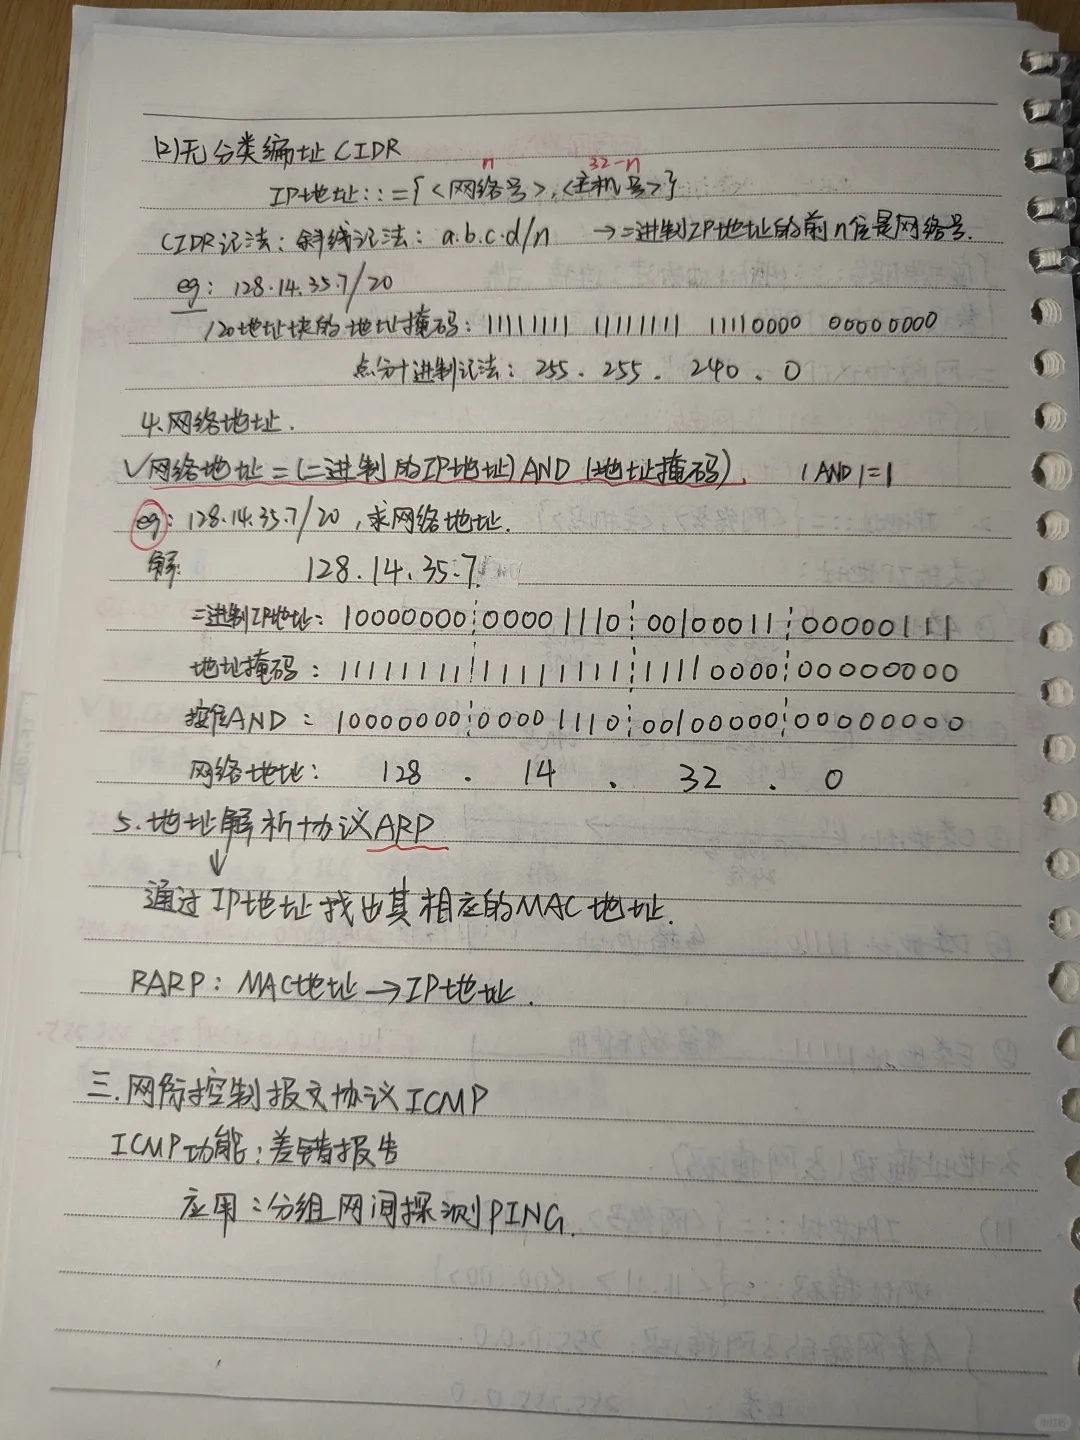 (2)无分类编址CIDR
n 32-n
IP地址::={<网络号>,<主机号>}
CIDR记法:斜线记法:a.b.c.d/n →二进制IP地址的前n位是网络号.
eg:128.14.35.7/20
/20地址块的地址掩码:11111111 11111111 11110000 00000000
点分十进制记法:255.255.240.0
4.网络地址.
√网络地址=(二进制的IP地址)AND(地址掩码). 1AND1=1
eg:128.14.35.7/20,求网络地址.
解: 128.14.35.7
二进制IP地址:10000000 00001110 00100011 00000111
地址掩码:11111111 11111111 11110000 00000000
按位AND:10000000 00001110 00100000 00000000
网络地址:128.14.32.0
5.地址解析协议ARP
↓
通过IP地址找出其相应的MAC地址.
RARP:MAC地址→IP地址.
三.网际控制报文协议ICMP
ICMP功能:差错报告
应用:分组网间探测PING.